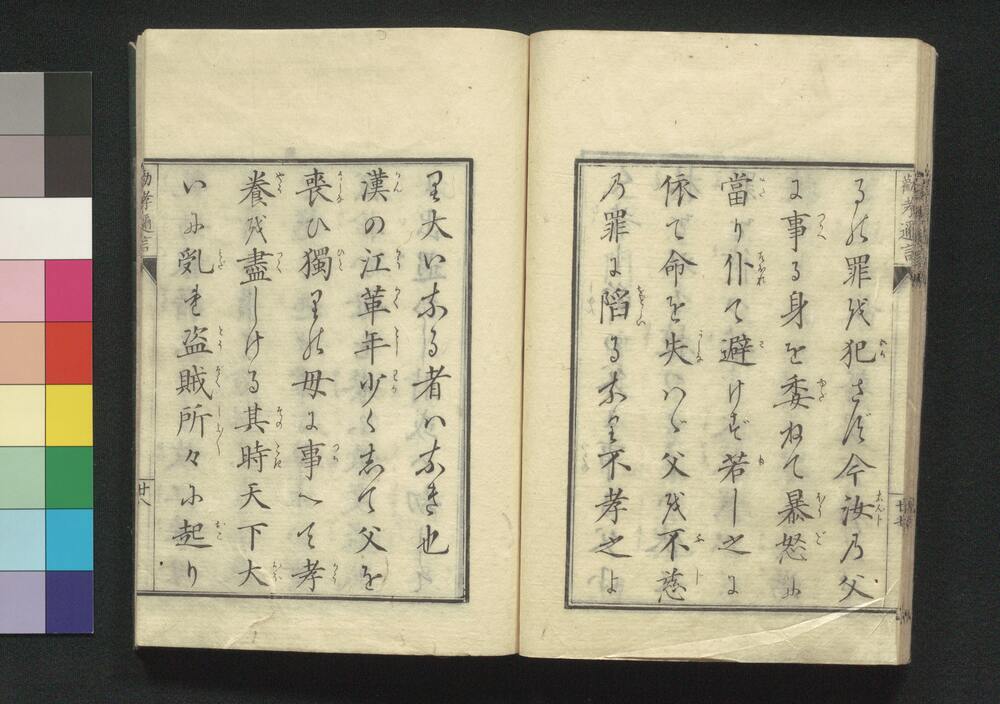 るの罪を犯さず今汝乃父
に事る身を委ねて暴怒に
當り仆て避けず若し之に
依て命を失ハゞ父を不慈
乃罪に陷るなり不孝之よ
勸孝邇言
廿七
り大いなる者ハなき也
漢の江革年少く志て父を
喪ひ獨りの母に事へて孝
養を盡しける其時天下大
いに乱れ盗賊所々に起り
勸孝邇言
廿八